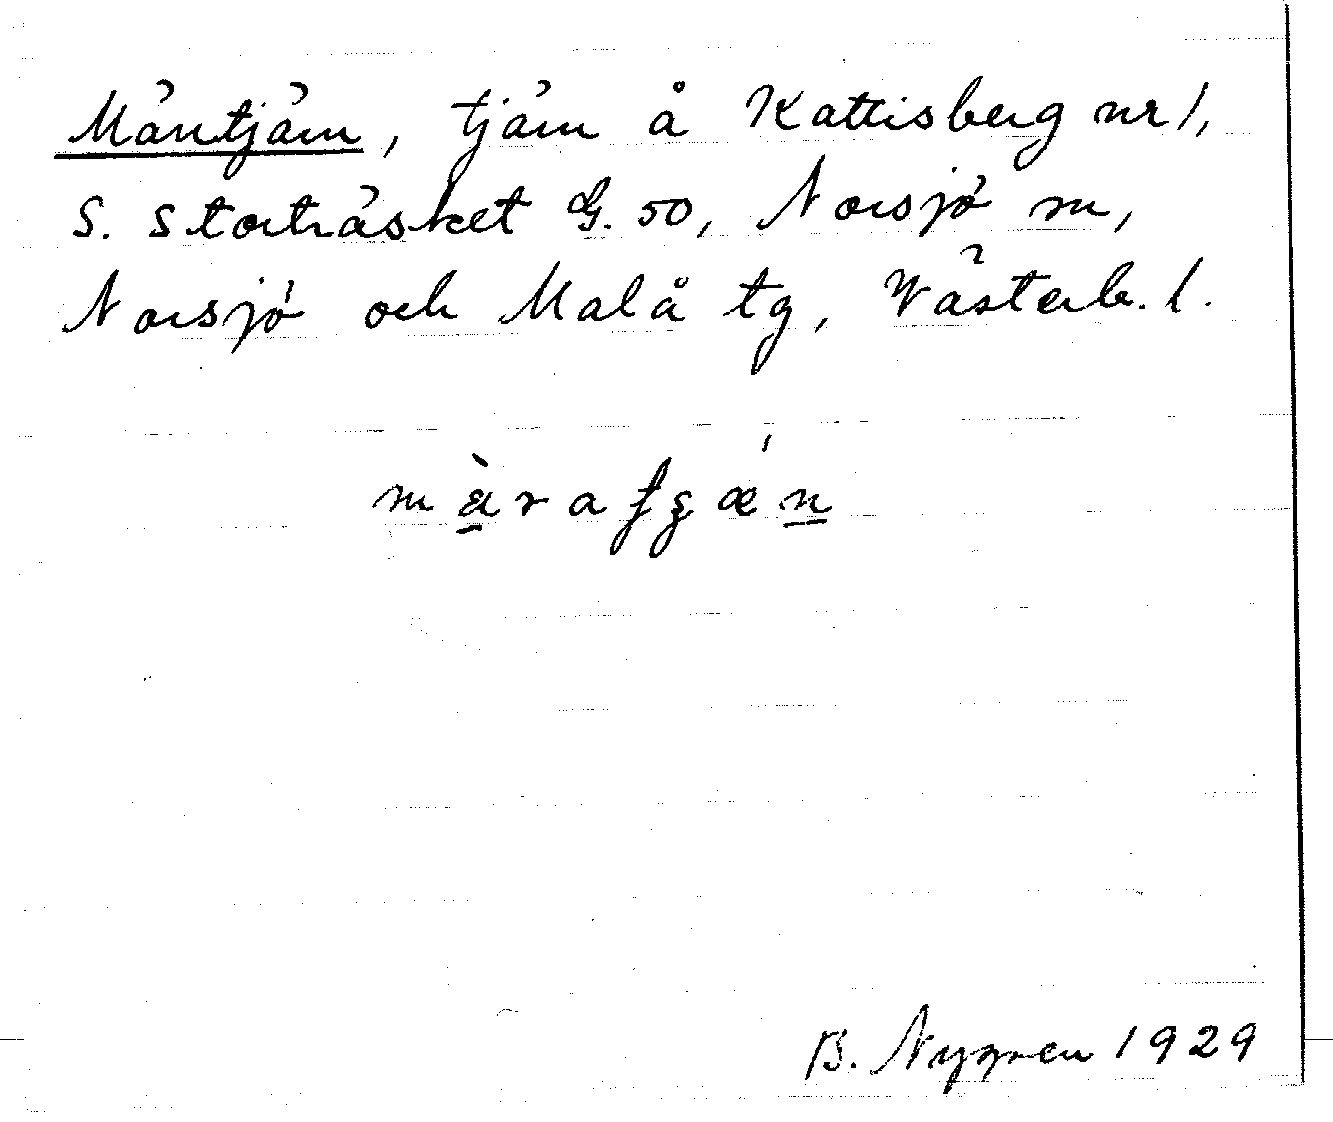 Märrtjärn, tjärn å Kattisberg nr 1,
S. Storträsket G. 50, Norsjö sn,
Norsjö och Malå tg, Västerb. l.
B. Nygren 1929